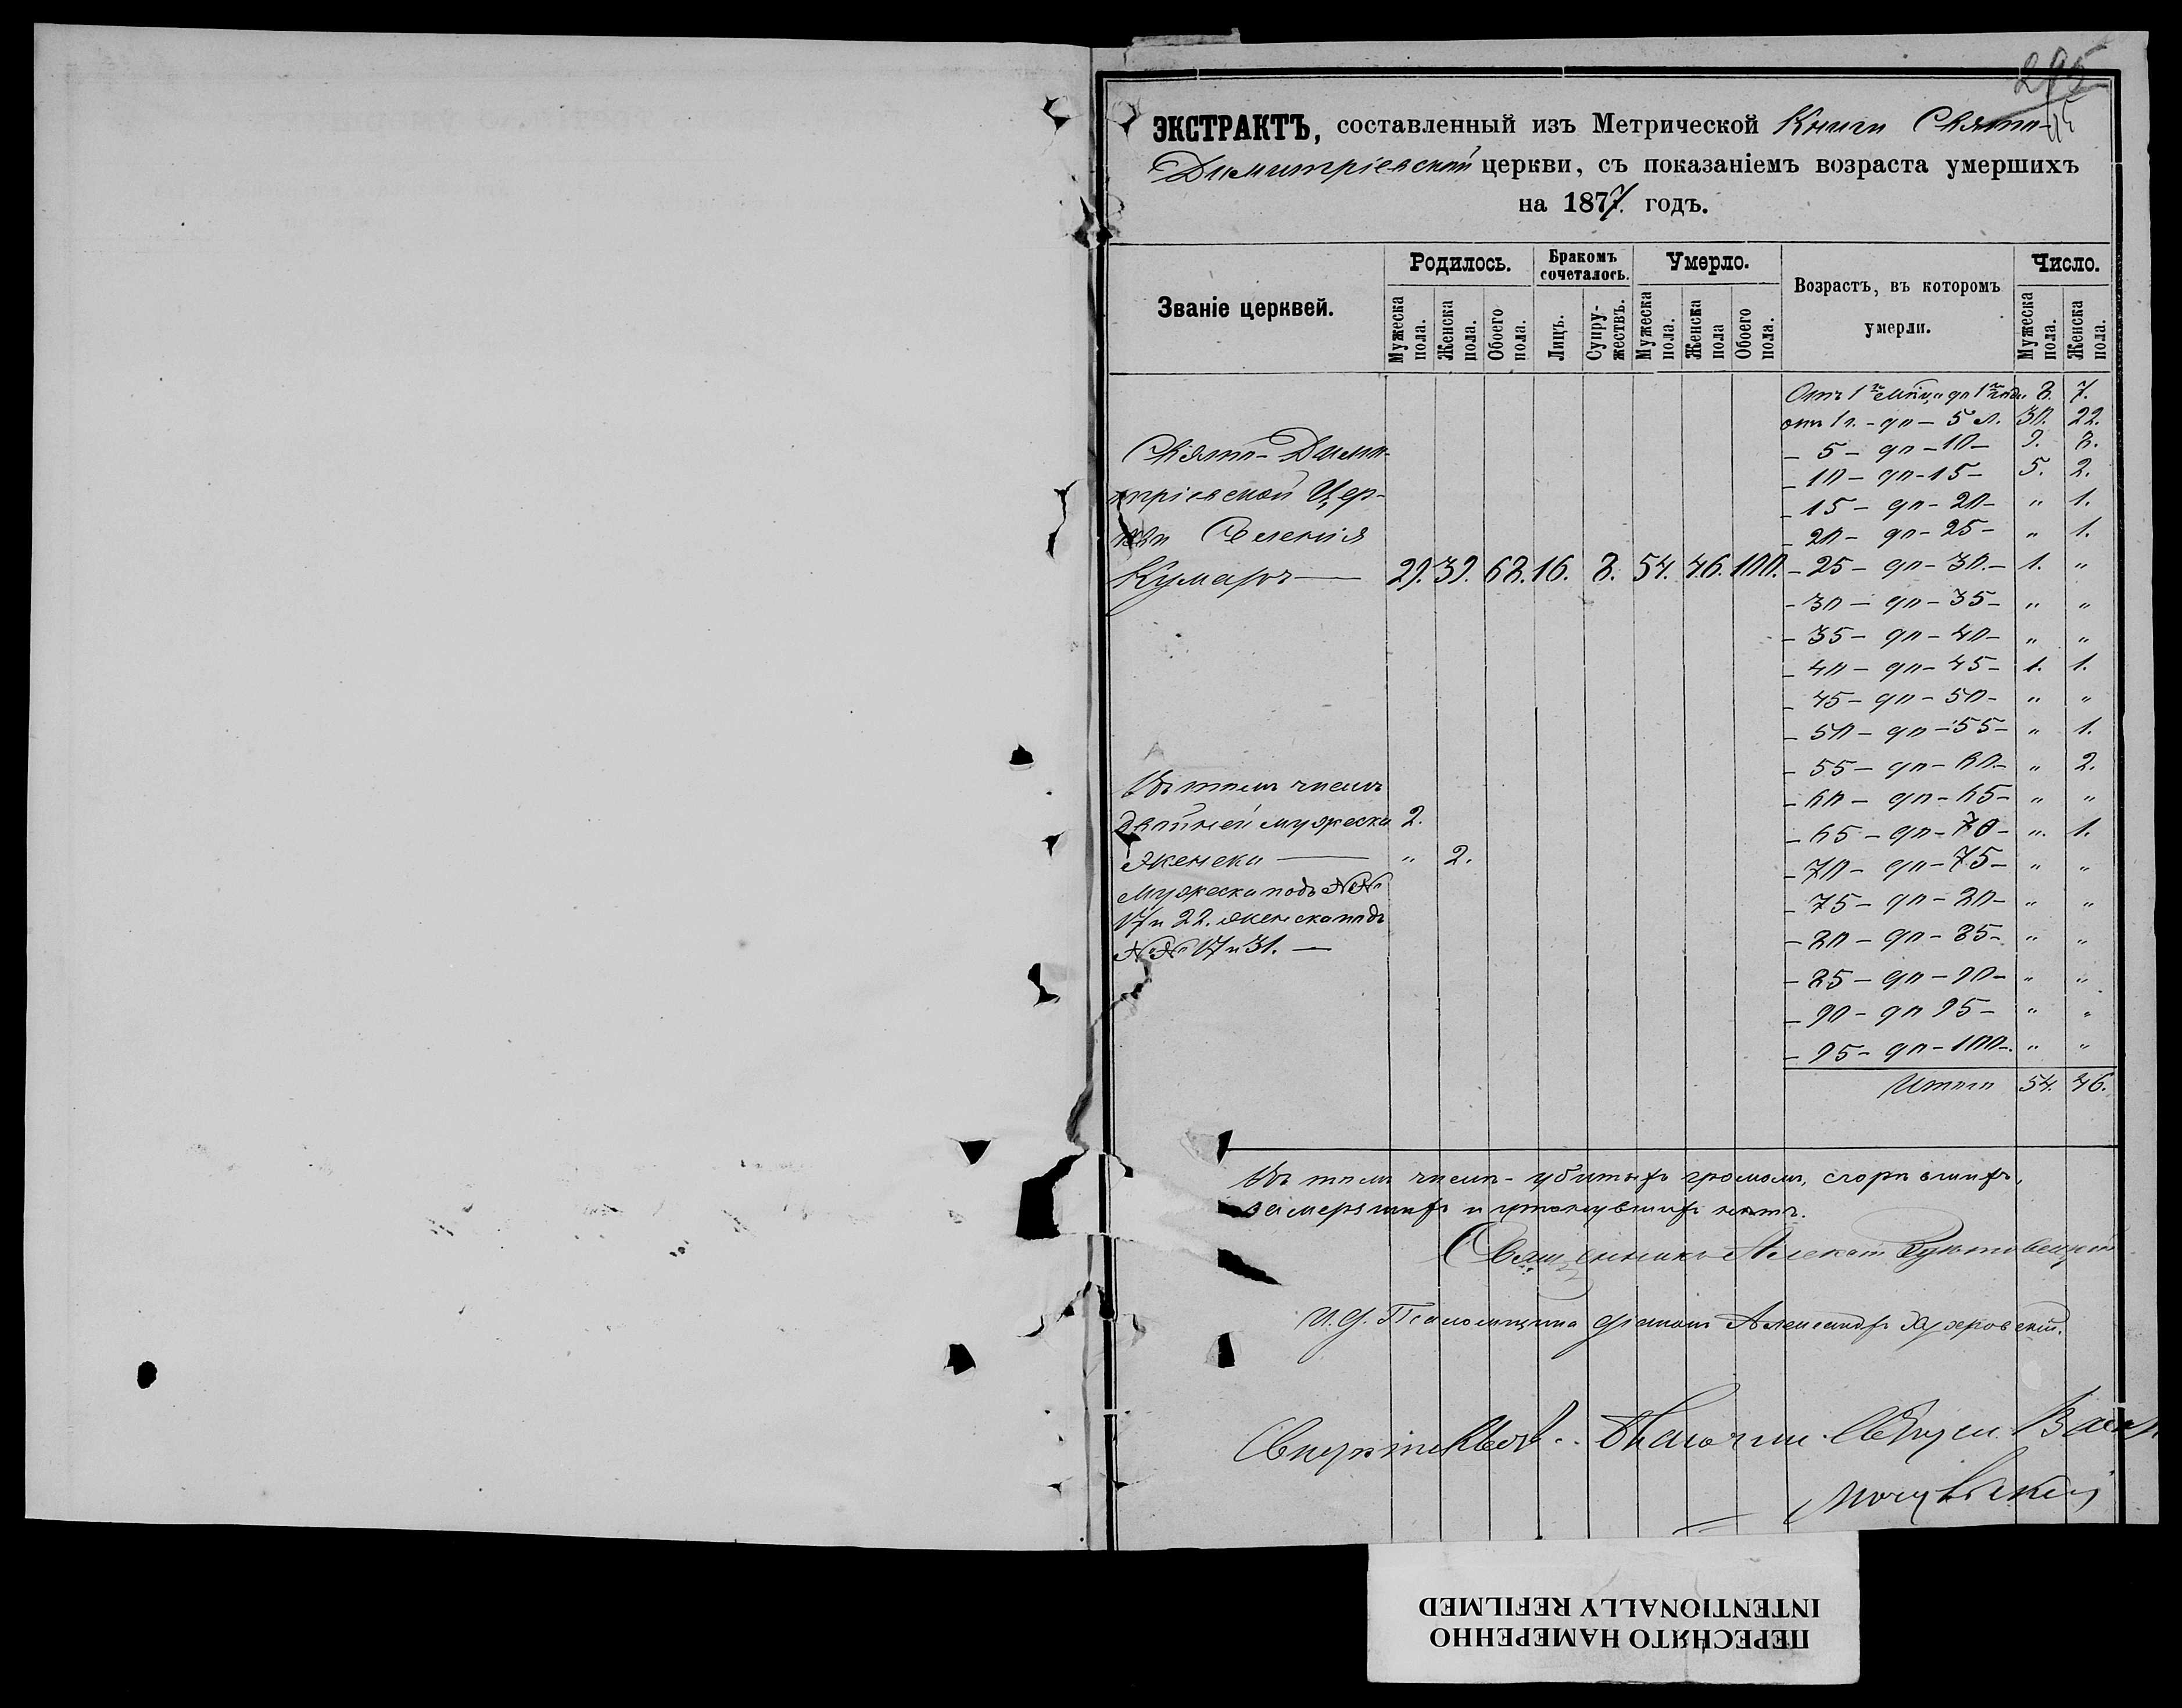 295
ЭКСТРАКТЪ, составленный изъ Метрической Книги Свято-
Димитріевской церкви, съ показаніемъ возраста умершихъ
на 1877. годъ.
Званіе церквей. Родилось. Бракомъ сочеталось. Умерло. Возрастъ, въ которомъ умерли. Число.
Мужеска пола. Женска пола. Обоего пола. Лицъ. Супружествъ. Мужеска пола. Женска пола Обоего пола. Мужеска пола. Женска пола.
Отъ 1го мѣсяца до 1го года 8. 7.
отъ 1 г. - до - 5 л. 30. 22.
- 5 - до - 10 - 9. 8.
- 10 - до - 15 - 5. 2.
- 15 - до - 20 - " 1.
- 20 - до - 25 - " 1.
Свято-Дими-
тріевской Цер-
кви Селенія
Кумаръ — 29. 39. 68. 16. 8. 54. 46. 100. - 25 - до - 30. - 1. "
- 30 - до - 35 - " "
- 35 - до - 40 - " "
- 40 - до - 45 - 1. 1.
- 45 - до - 50 - " "
- 50 - до - 55 - " 1.
- 55 - до - 60. - " 2.
- 60 - до - 65 - " "
- 65 - до - 70 - " 1.
- 70 - до - 75 - " "
- 75 - до - 80 - " "
- 80 - до - 85 - " "
- 85 - до - 90 - " "
- 90 - до 95 - " "
- 95 - до - 100 -. " "
Итого 54. 46.
Въ томъ числѣ
двойней мужеска 2.
женска — " 2.
Мужеска подъ №№
17 и 22. женска подъ
№№ 17 и 31. —
Въ томъ числѣ - убитыхъ громомъ, сгорѣвшихъ,
замерзшихъ и утонувшихъ нѣтъ.
Священникъ Алексій
И. д. Псаломщика Александръ